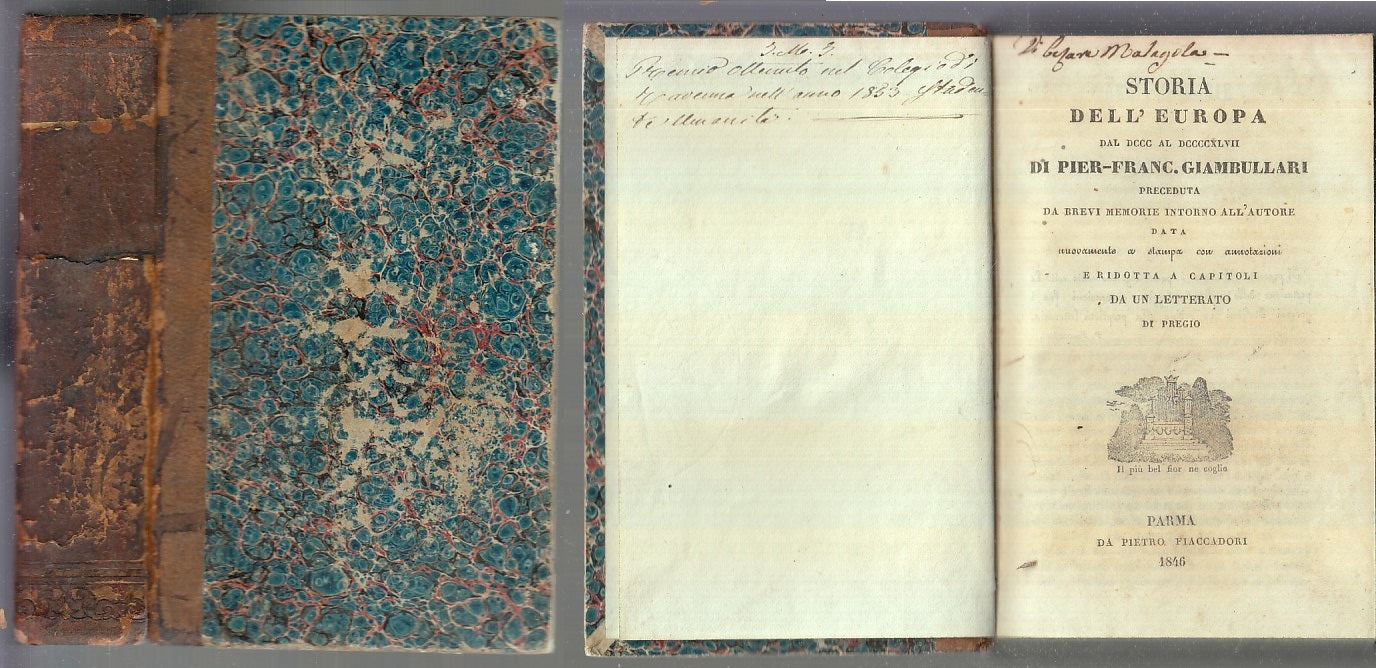 J. M. J.
Premio ottenuto nel Colegio di
Ravenna nell'anno 1853
di Umanità.
Di Cesare Malagola
STORIA
DELL' EUROPA
DAL DCCC AL DCCCCXLVII
DI PIER-FRANC. GIAMBULLARI
PRECEDUTA
DA BREVI MEMORIE INTORNO ALL'AUTORE
DATA
nuovamente a stampa con annotazioni
E RIDOTTA A CAPITOLI
DA UN LETTERATO
DI PREGIO
Il più bel fior ne coglie
PARMA
DA PIETRO FIACCADORI
1846